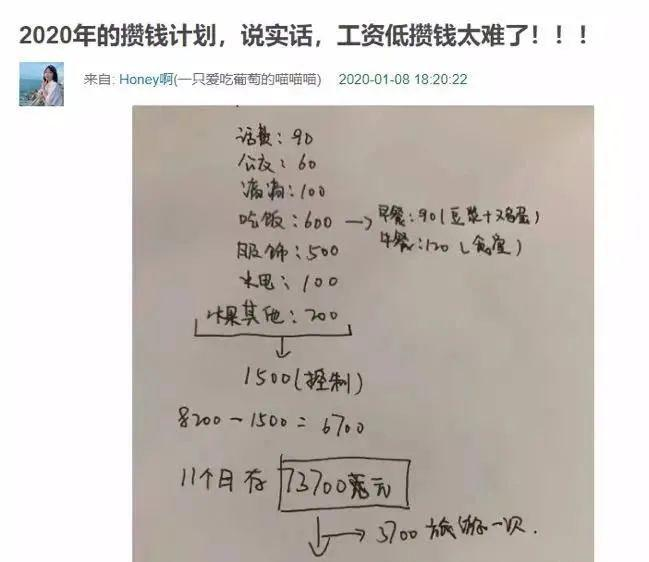 2020年的攒钱计划，说实话，工资低攒钱太难了！！！
来自: Honey啊(一只爱吃葡萄的喵喵喵) 2020-01-08 18:20:22
话费：90
公交：60
滴滴：100
吃饭：600 → 早餐：90(豆浆+鸡蛋)
午餐：120(食堂)
服饰：500
水电：100
水果其他：200
1500(控制)
8200-1500=6700
11个月存 73700元
3700旅游一次.